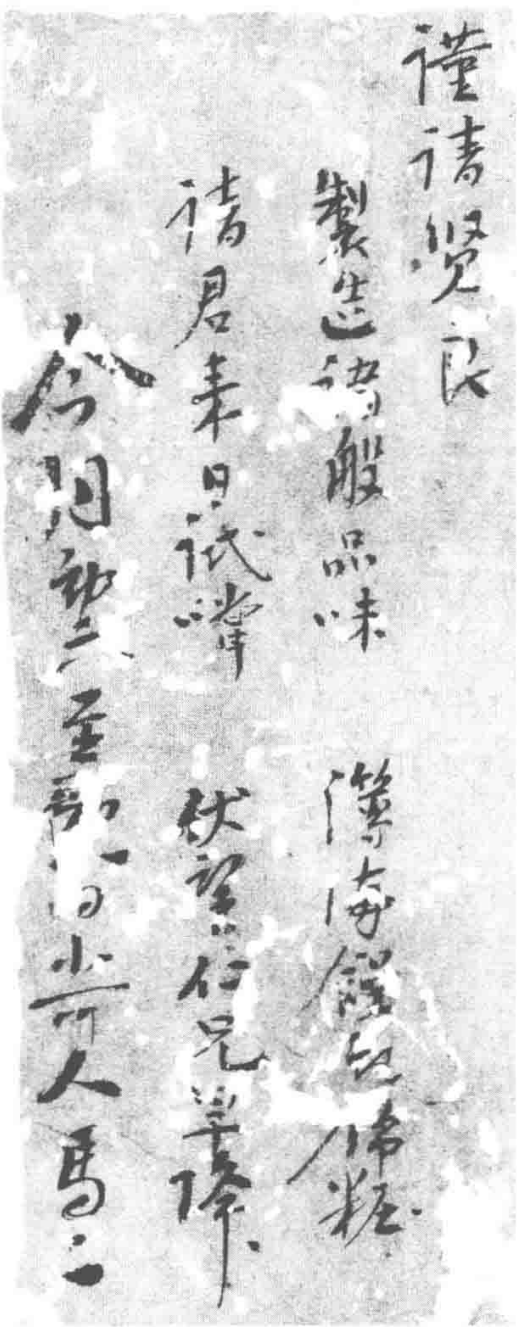 謹請賢良
製造諸般品味 簿海饅头俻粧
請君来日試嚐 伏望仁兄早降
今月初六至初八日小可人馬二